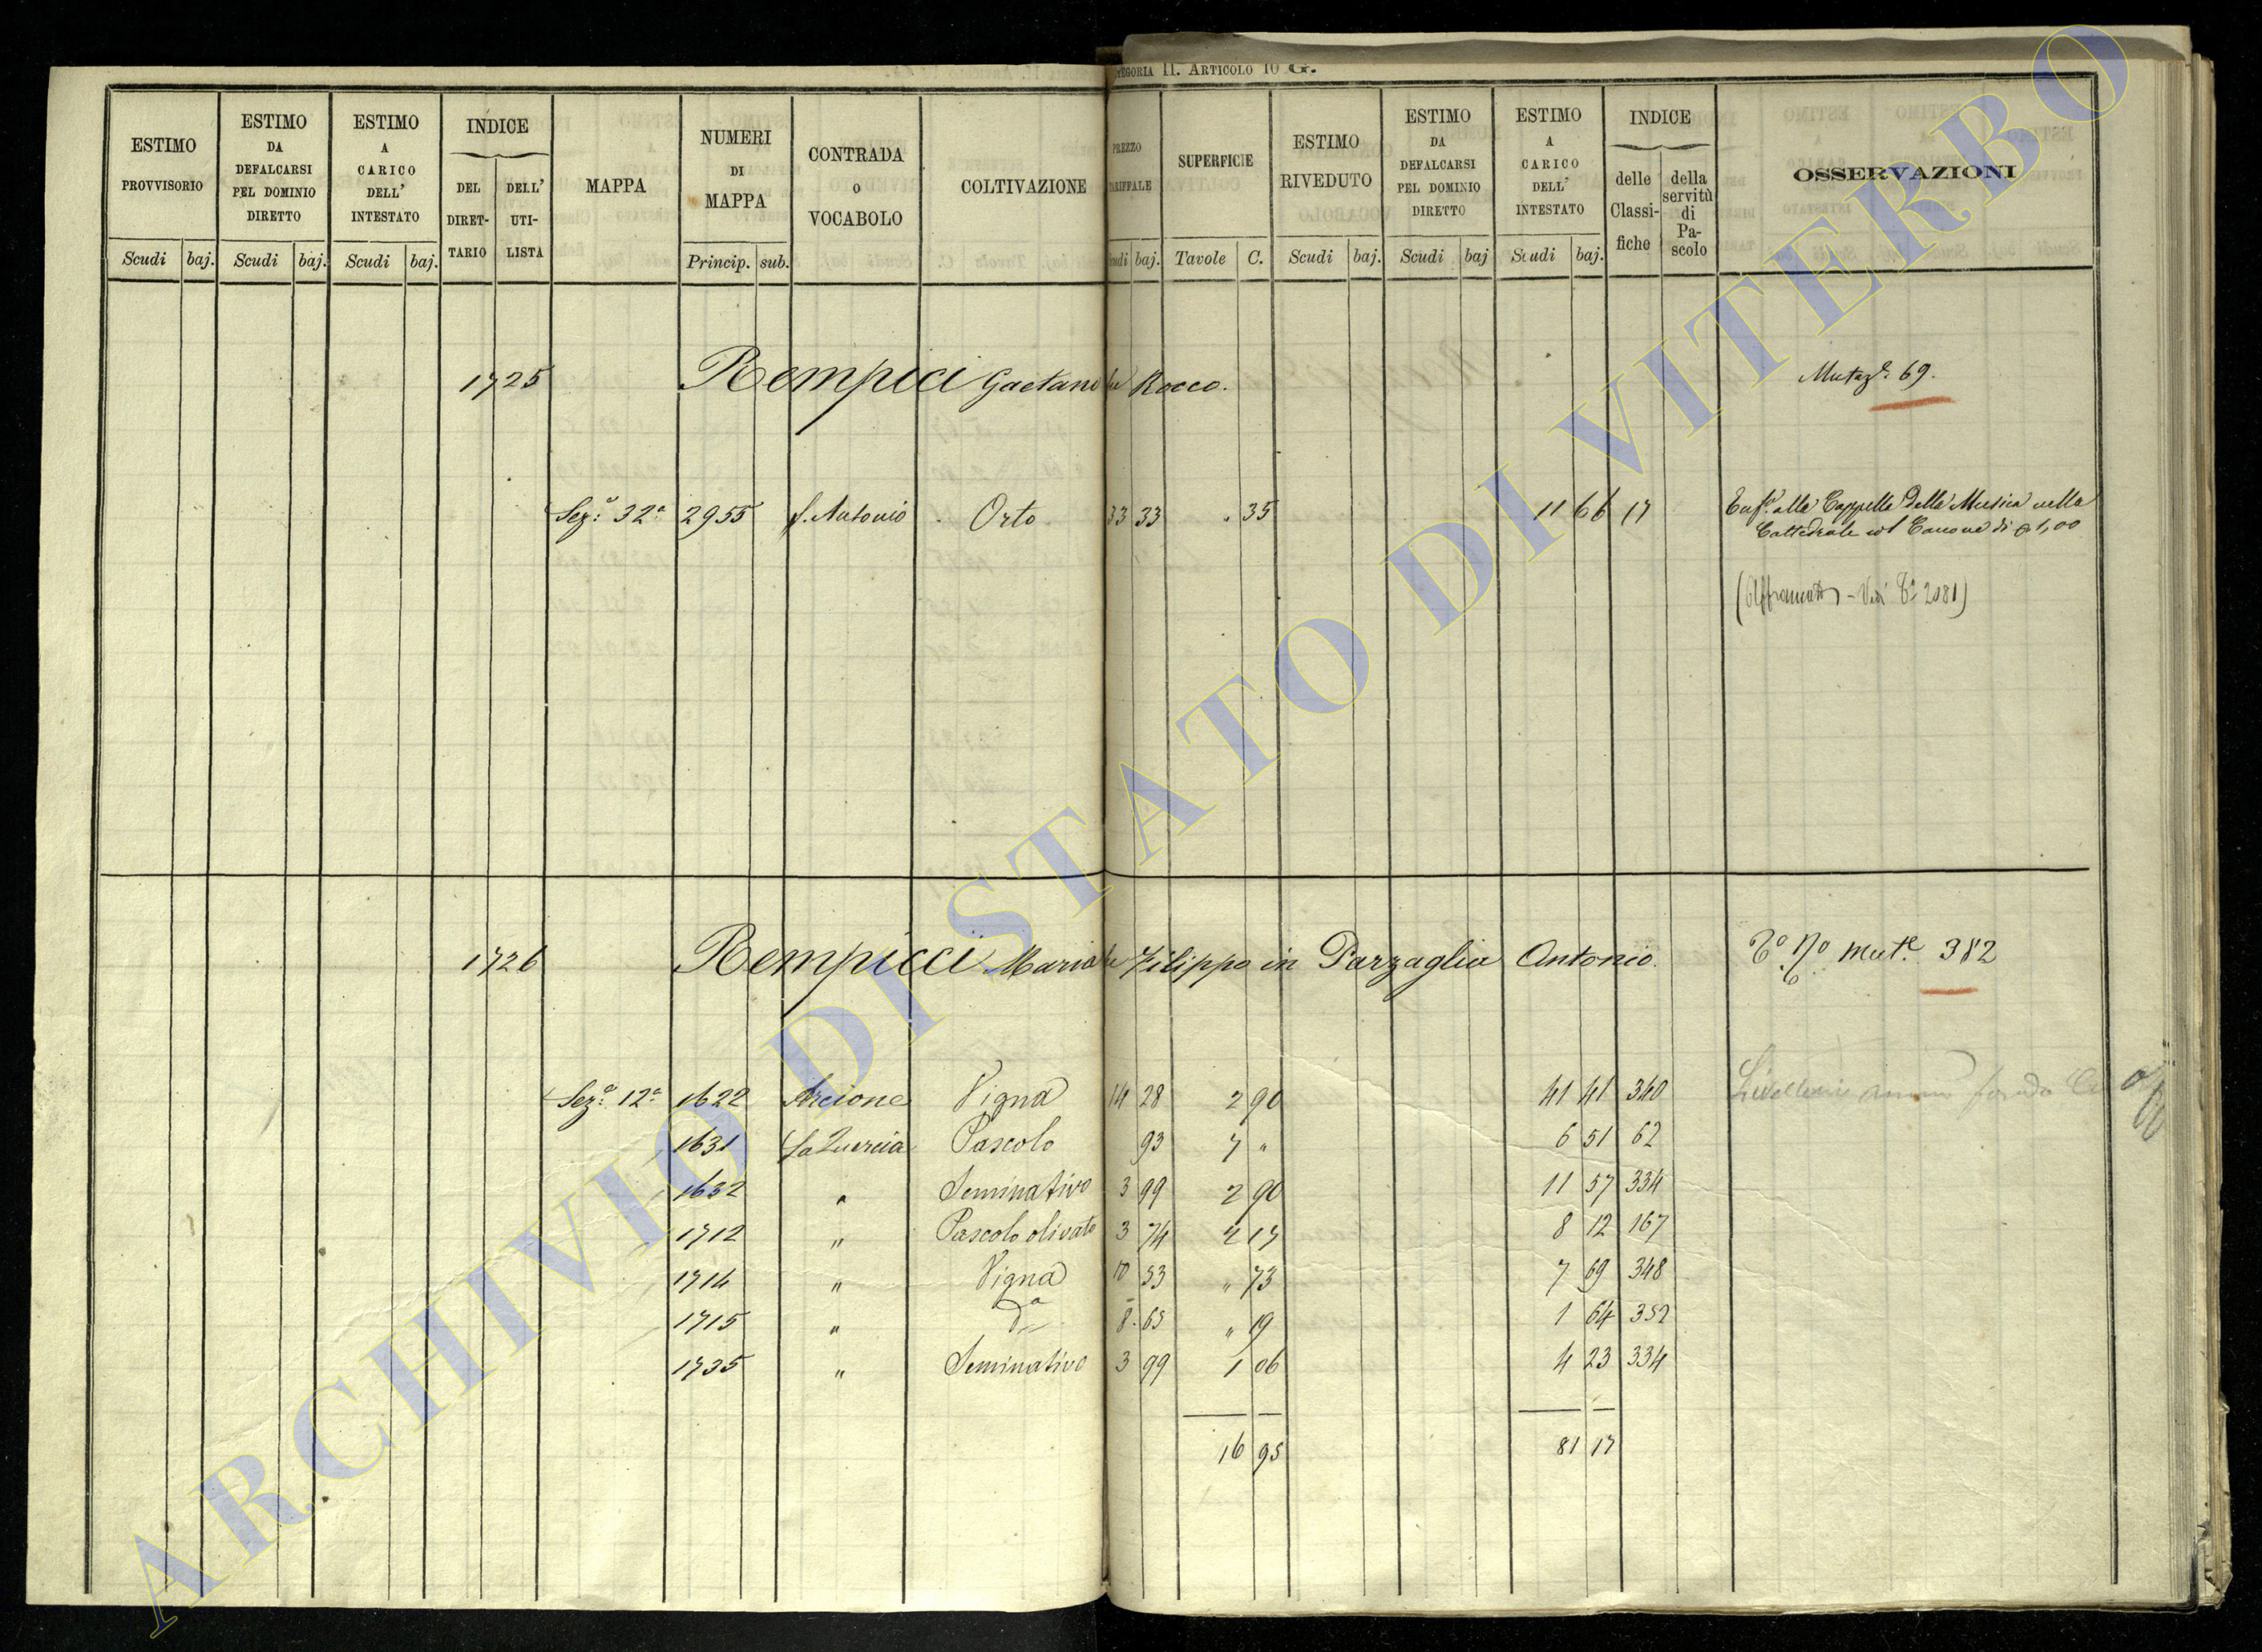 CATEGORIA II. ARTICOLO 10 G.
ESTIMO PROVVISORIO
ESTIMO DA DEFALCARSI PEL DOMINIO DIRETTO
ESTIMO A CARICO DELL' INTESTATO
INDICE
DEL DIRETTARIO
DELL' UTILISTA
MAPPA
NUMERI DI MAPPA
CONTRADA O VOCABOLO
COLTIVAZIONE
PREZZO TARIFFALE
SUPERFICIE
ESTIMO RIVEDUTO
ESTIMO DA DEFALCARSI PEL DOMINIO DIRETTO
ESTIMO A CARICO DELL' INTESTATO
INDICE
delle Classifiche
della servitù di Pascolo
OSSERVAZIONI
Scudi baj. Scudi baj. Scudi baj. Princip. sub. Scudi baj. Tavole C. Scudi baj. Scudi baj Scudi baj.
1725 Rempici Gaetano fu Rocco. Mutaz.e 69.
Sez.e 32a 2955 S. Antonio Orto 33 33 . 35 11 66 17 Enf.a alla Cappella Della Musica nella
Cattedrale col Canone di 1,00
(Affrancato - Vedi 2081)
1726 Rempicci Maria fu Filippo in Parzaglia Antonio. Mut.e 382
Sez.e 12a 1622 Arcione Vigna 14 28 2 90 41 41 340
1631 La Quercia Pascolo 93 7 " 6 51 62
1632 " Seminativo 3 99 2 90 11 57 334
1712 " Pascolo olivato 3 74 2 17 8 12 167
1714 " Vigna 10 53 " 73 7 69 348
1715 " da 8 65 " 19 1 64 352
1735 " Seminativo 3 99 1 06 4 23 334
16 95 81 17
ARCHIVIO DI STATO DI VITERBO